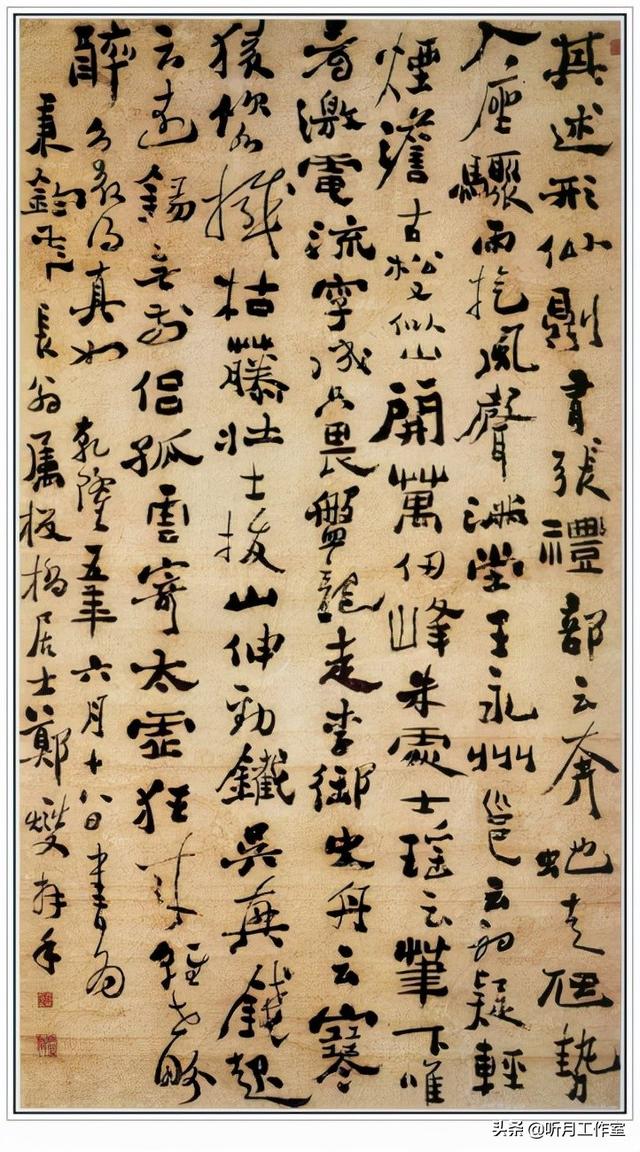 其述形似則有張澧部云奔蛇走虺勢
入座驟雨旋風聲滿堂王永州邕云初疑輕
煙澹古松又似山開萬仞峰朱處士瑶云筆下唯
看激電流字成只畏盤龍走李御史舟云寒
猿飲水撼枯藤壯士拔山伸勁鐵吳興錢起
云遠錫無前侶孤雲寄太虛狂來輕世界
醉裏得真如 乾隆五年六月十八日書為
秉鈞長翁属板橋居士鄭燮
头条 @听月工作室